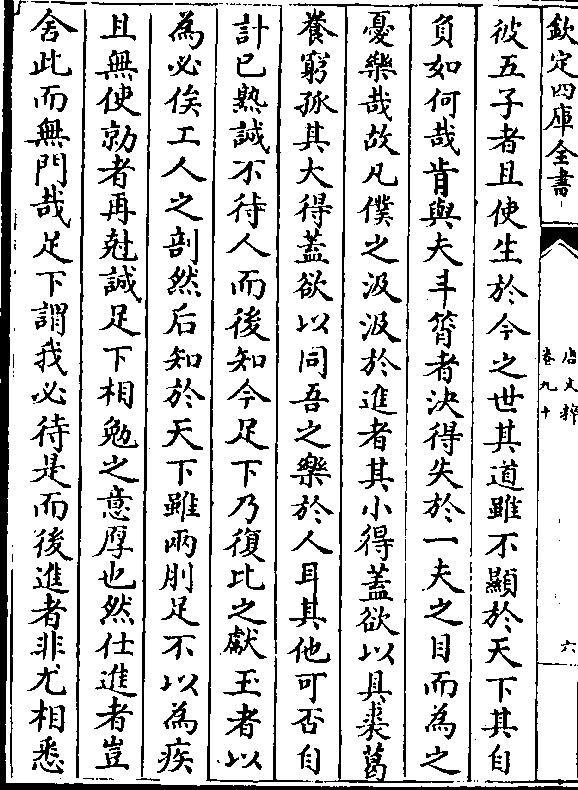 欽定四庫全書
唐文粹
卷九十
六
彼五子者且使生於今之世其道雖不顯於天下其自
負如何哉肯與夫斗筲者決得失於一夫之目而為之
憂樂哉故凡僕之汲汲於進者其小得蓋欲以具裘葛
養窮孤其大得蓋欲以同吾之樂於人耳其他可否自
計已熟誠不待人而後知今足下乃復比之獻玉者以
為必俟工人之剖然后知於天下雖兩刖足不以為疾
且無使勍者再尅誠足下相勉之意厚也然仕進者豈
舍此而無門哉足下謂我必待是而後進者非尤相悉